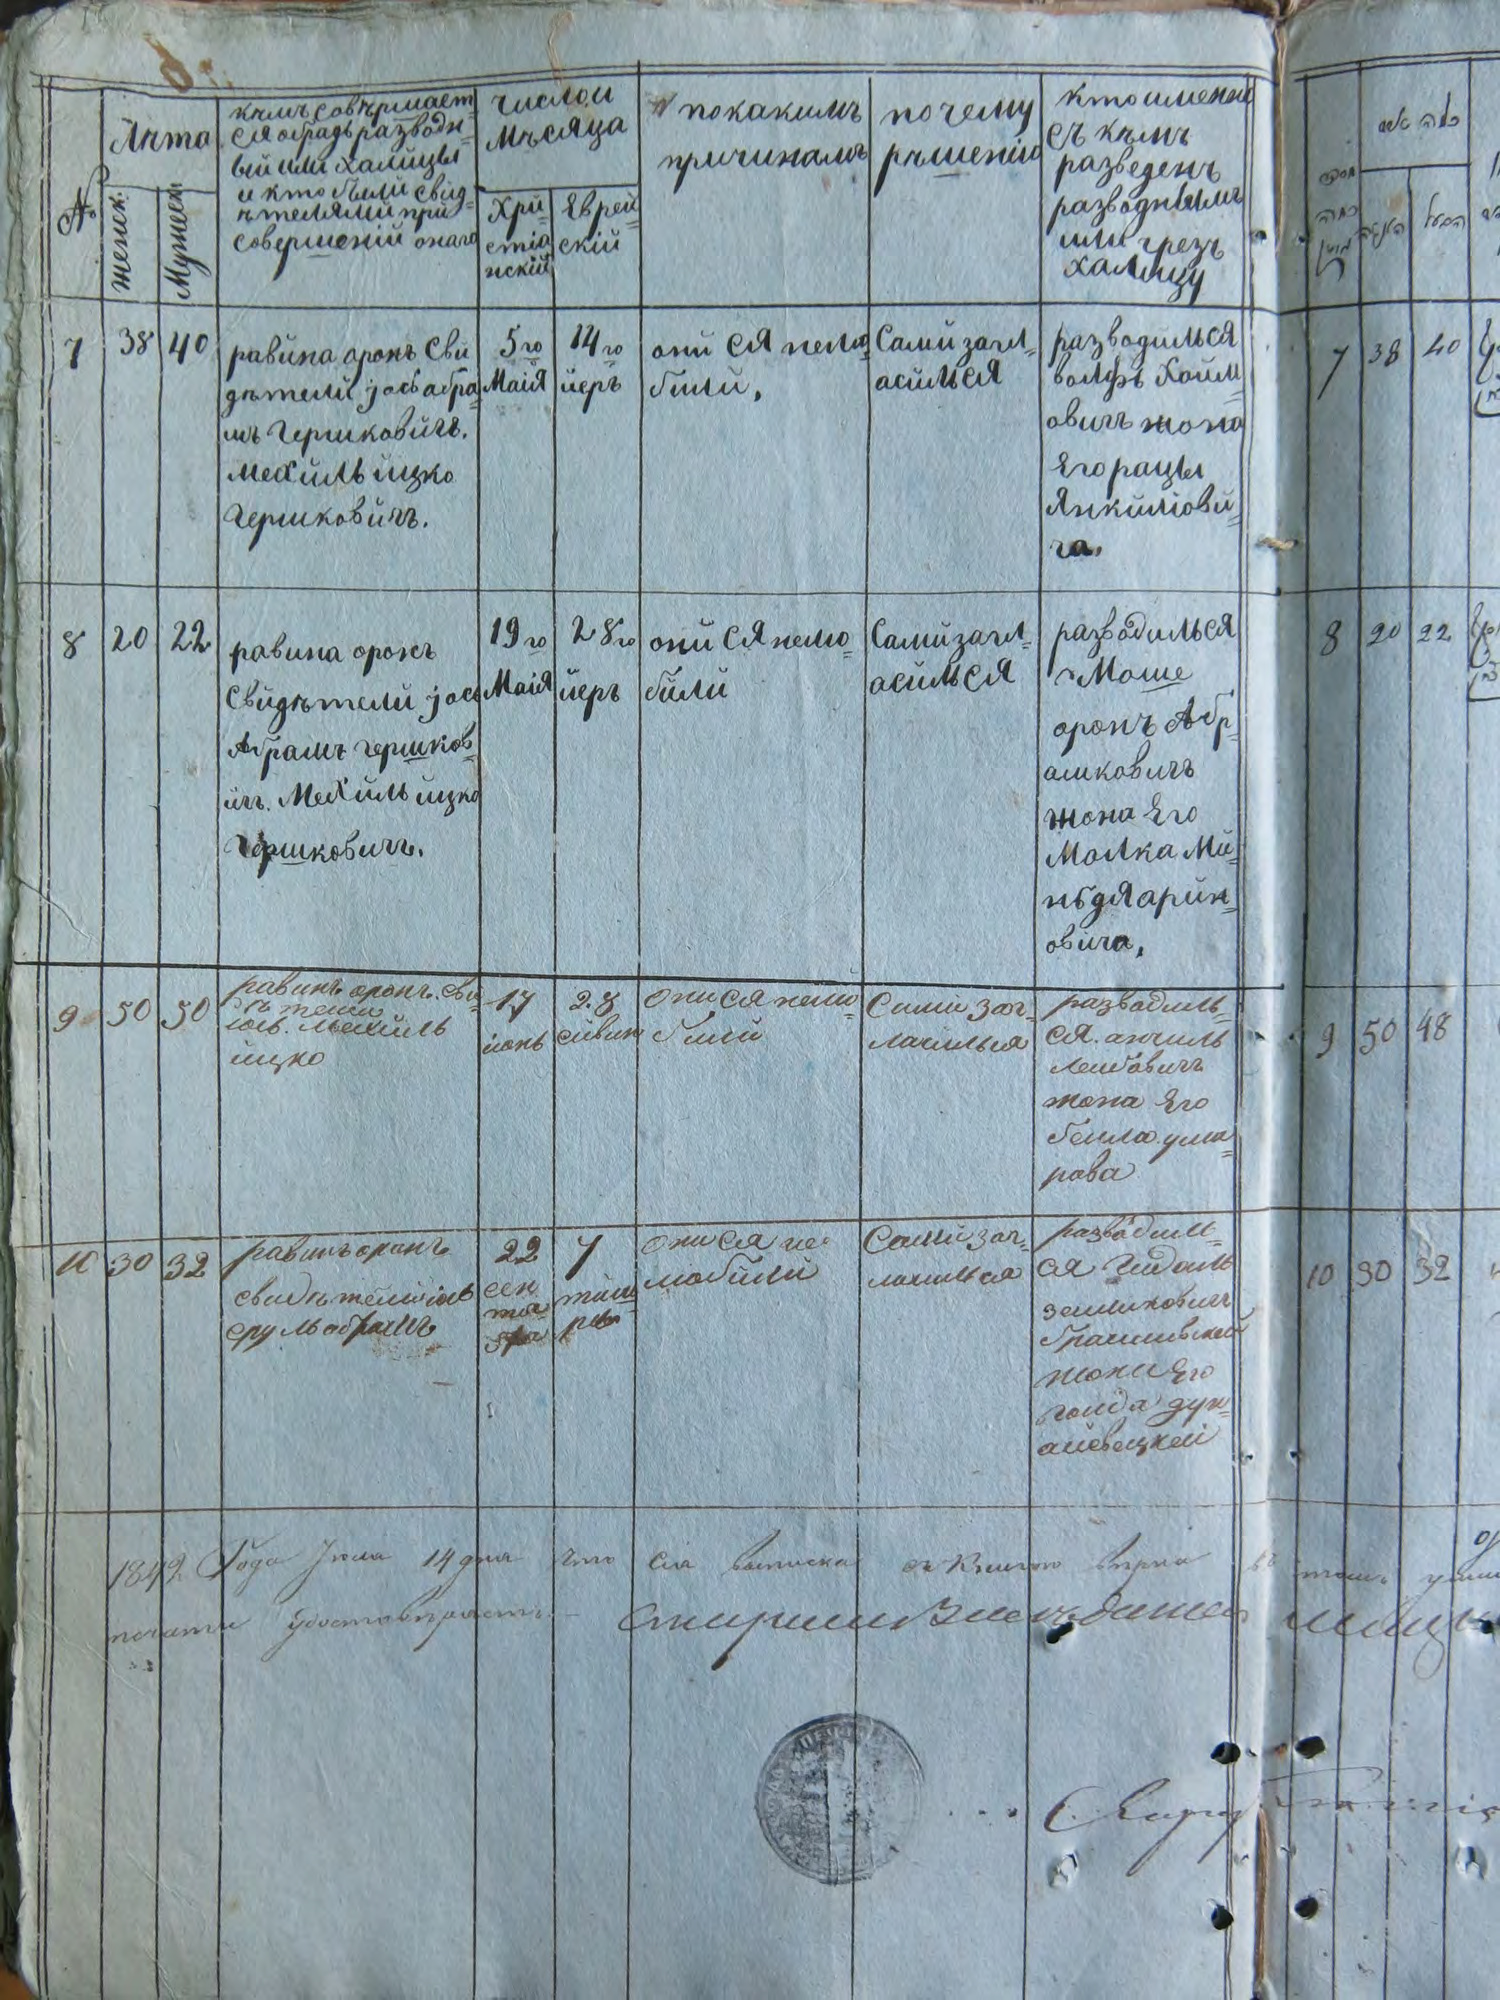 №
Лѣта
женск.
Мужеск
кѣмъ совершает=
ся обрядъ разводн=
ый или халицы
и кто были свид=
ѣтелями при
совершеній онаго
число и
мѣсяца
Хри=
стіа
нскій
Еврей=
скій
по какимъ
причинамъ
по чему
рѣшенію
кто именно
съ кѣмъ
разведенъ
разводнымъ
или чрезъ
халицу
7
38
40
равина оронъ Сви
дѣтели јось абра=
мъ Гершковичъ.
Мехиль ицко
Гершковичъ.
5го
Маія
14го
іеръ
они ся нелю=
били,
Сами загл=
асилься
разводилься
волфъ Хаим
овичъ жона
Его рацы
Янкиліови=
ча,
8
20
22
равина оронъ
Свидѣтели јось
Абрамъ гершков=
ичъ. Мехиль ицко
Гершковичъ.
19го
Маія
28го
іеръ
они ся нелю=
били
Сами загл=
асилься
разводилься
Моше
оронъ Абр=
амковичъ
жона Его
Малка Ми=
ндя арин=
овича,
9
50
50
равинъ оронъ. сви=
дѣтели
іось. Мехиль
ицко
17
іюнь
28
сивин
они ся нелю=
били
Сами заг=
ласилься
разводиль=
ся. анчиль
Лейбовичъ
жона Его
бейла ума=
рова
10
30
32
равинъ оронъ
свидѣтели іось
сруль абрамъ
22
сен
тя
бра
7
тиш
ры
они ся не
любили
Сами заг=
ласилься
разводил=
ся Гидаль
зеликовичъ
жона Его
голда дун=
аивецкеі
7
38
40
8
20
22
9
50
48
10
30
32
1842 Года Іюля 14 дня что сіа выписка съ Книгою вѣрна въ томъ
печати удостовѣраетъ. —